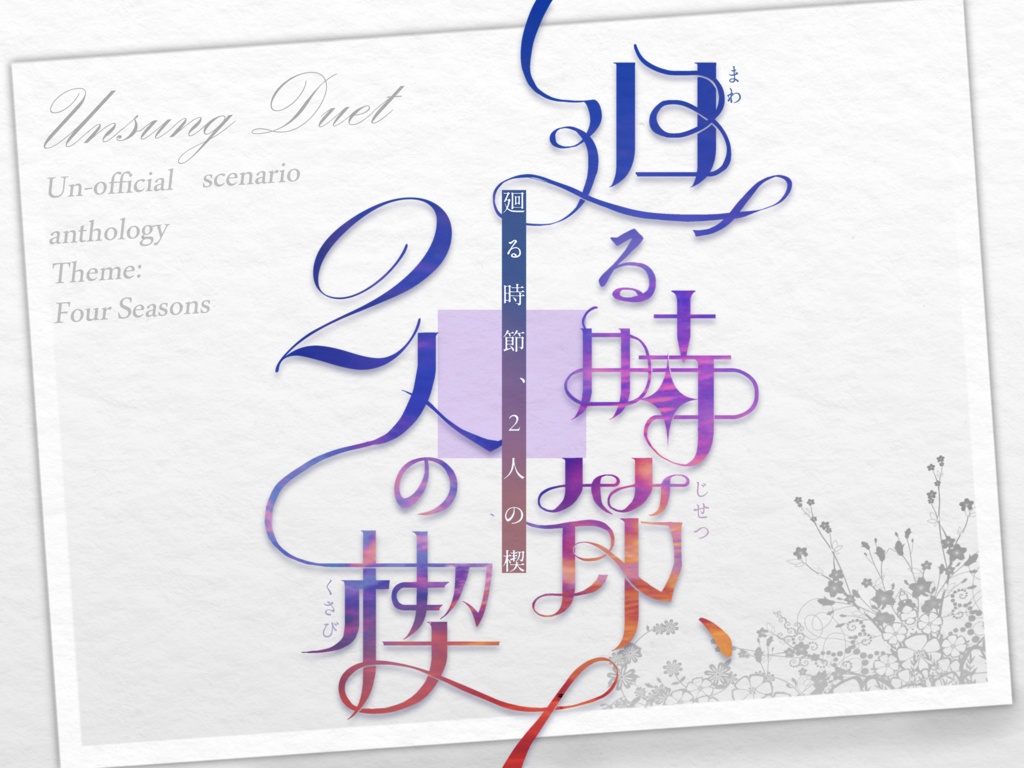 Unsung Duet
Un-official scenario
anthology
Theme:
Four Seasons
廻る時節、
まわ
じせつ
2人の楔
くさび
廻る時節、2人の楔